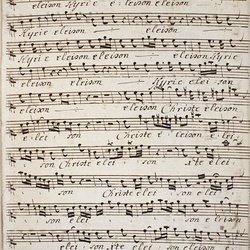 eleison Kyrie e: leison eleison
Kyrie eleison eleison
eleison Kyrie eleison
eleison Kyrie elei son
eleison Christe eleison
e: lei: son Christe e: leison e:
son Christe elei: son xte elei:
son Christe elei: son
son elei: son eleison
elei: son, xte elei: son elei: